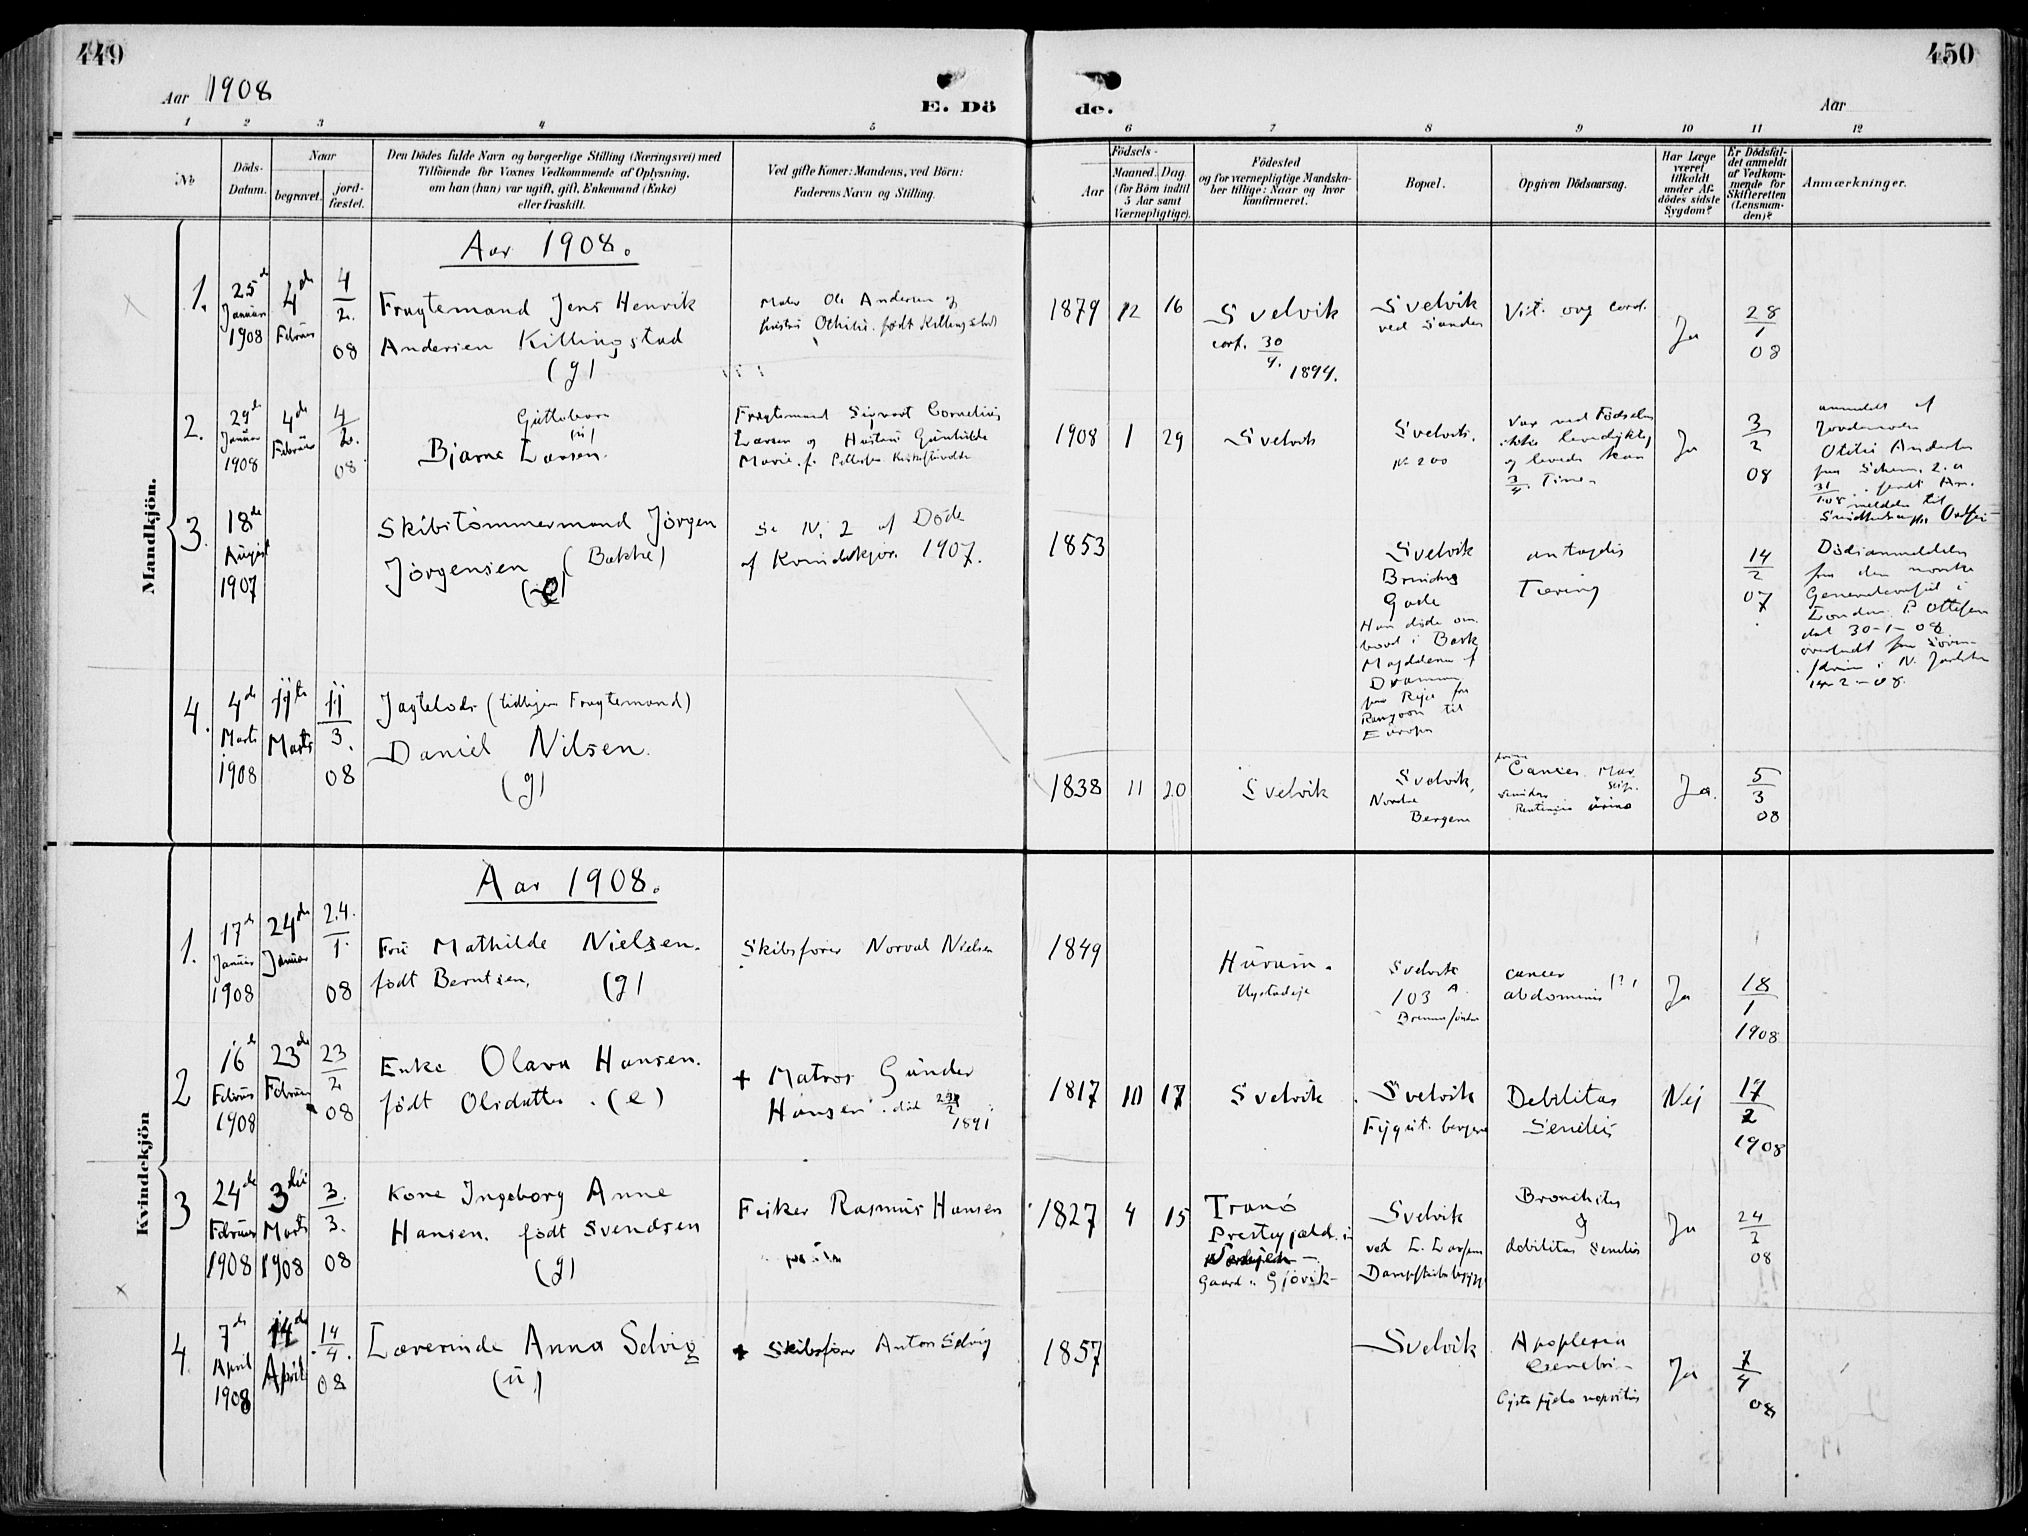 449
450
Aar 1908
E. Dö
de.
Aar
1
2
3
4
5
6
7
8
9
10
11
12
No
Döds-
Datum.
Naar
begravet.
jord-
fæstet.
Den Dödes fulde Navn og borgerlige Stilling (Næringsvei) med
Tilföiende for Voxnes Vedkommende af Oplysning,
om han (hun) var ugift, gift, Enkemand (Enke)
eller fraskilt.
Ved gifte Koner: Mandens, ved Börn:
Faderens Navn og Stilling.
Födsels-
Aar
Maaned.
Dag.
(for Börn indtil
5 Aar samt
Værnepligtige).
Födested
og for værnepligtige Mandska-
ber tillige: Naar og hvor
konfirmeret.
Bopæl.
Opgiven Dödsaarsag.
Har Læge
været
tilkaldt
under Af-
dödes sidste
Sygdom?
Er Dödsfal-
det anmeldt
af Vedkom-
mende for
Skifteretten
(Lensman-
den)?
Anmærkninger.
Mandkjön.
Aar 1908.
1.
25de
Januar
1908
4de
Februar
4
2.
08
Fragtemand Jens Henrik
Andersen Killingstad
(g)
Ole Andersen og
Othilie født Killingstad
1879 12 16
Svelvik
conf. 30
4.
1894.
Svelvik
ved Sanden
Vit. org cord.
Ja
28
1
08
2.
29de
Januar
1908
4de
Februar
4
2.
08
Guttebarn
(u)
Bjarne Larsen.
Fragtemand Sigvart Cornelius
Larsen og Hustru Gunhilde
Marie f. Pettersen
1908 1 29
Svelvik
Svelvik.
No 200
Var ved Fødselen
ikke levedyktig
og levede kun
3
4 Time
Ja
3
2
08
anmeldt af
Jordemoder
Otilie Andersen
31
1.08
3.
18de
August
1907
Skibstømmermand Jørgen
Jørgensen (Bakke)
(e)
Se N. 2 af Døde
af Kvindekjøn 1907.
1853
Svelvik
Gade
Han døde om
bord i Bark
Magdalena af
Drammen
paa Rejse fra
Rangoon til
Europa
antagelig
Tæring
14
2
07
Dødsanmeldelse
fra den norske
Generalconsul i
London P. Ottesen
dat 30-1-08
oversendt fra Soren-
skriv i N. Jarlsberg
14-2-08.
4.
4de
Marts
1908
11te
Marts
11
3.
08
Jagtelods (tidligere Fragtemand)
Daniel Nilsen.
(g)
1838 11 20
Svelvik
Svelvik,
Nordre
Bergene
Cancer
Retentio urina
Ja.
5
3
08
Kvindekjön
Aar 1908.
1.
17de
Januar
1908
24de
Januar
24.
1.
08
Fru Mathilde Nielsen.
født Berntsen. (g)
Skibsfører Norval Nielsen
1849
Hurum.
Svelvik
103 A
cancer
abdominis (?)
Ja
18
1
1908
2
16de
Februar
1908
23de
Februar
23
2
08
Enke Olava Hansen.
født Olsdatter. (e)
+ Matros Gunder
Hansen. død
1891
1817 10 17
Svelvik
Svelvik
Debilitas
Senilis
Nej
17
2
1908
3
24de
Februar
1908
3die
Marts
1908
3.
3.
08
Kone Ingeborg Anne
Hansen. født Svendsen
(g)
Fisker Rasmus Hansen
1827 4 15
Tranø
Prestegjæld. i
Gaard Gjøvik-
Svelvik
ved L. Larsens
Dampskibsbrygge
Bronchitis
og
debilitas senilis
Ja
24
2
08
4.
7de
April
1908
14de
April
14
4.
08
Lærerinde Anna Selvig
(u)
+ Skibsfører Anton Selvig
1857
Svelvik
Apoplexia
Cerebri-
Cysto pyelo nephritis
Ja
7
4
08